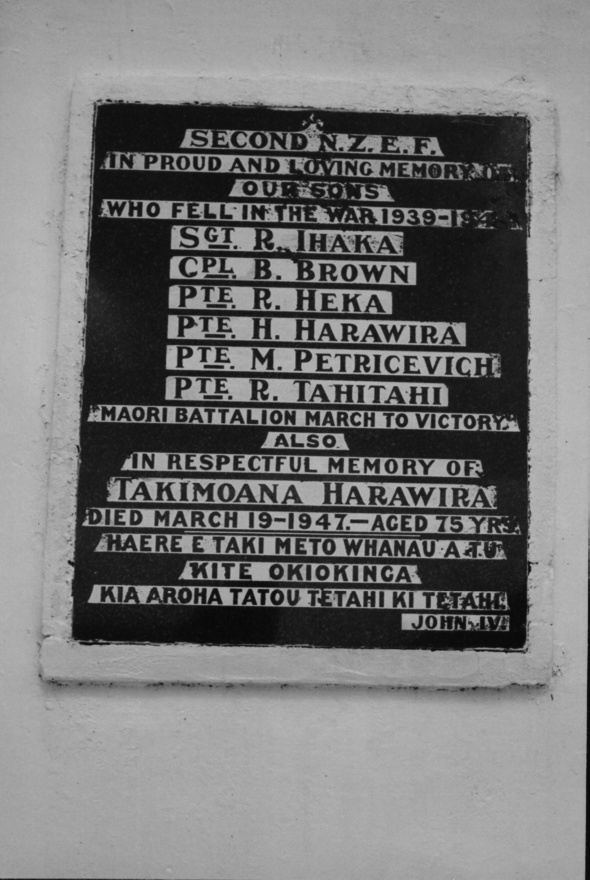 SECOND N.Z.E.F.
IN PROUD AND LOVING MEMORY OF
OUR SONS
WHO FELL IN THE WAR 1939-
SGT. R. IHAKA
CPL. B. BROWN
PTE. R. HEKA
PTE. H. HARAWIRA
PTE. M. PETRICEVICH
PTE. R. TAHITAHI
"MAORI BATTALION MARCH TO VICTORY."
ALSO
IN RESPECTFUL MEMORY OF
TAKIMOANA HARAWIRA
DIED MARCH 19-1947.-AGED 75 YRS.
HAERE E TAKI METO WHANAU A TU
KITE OKIOKINGA
KIA AROHA TATOU TETAHI KI TETAHI.
JOHN. IV.